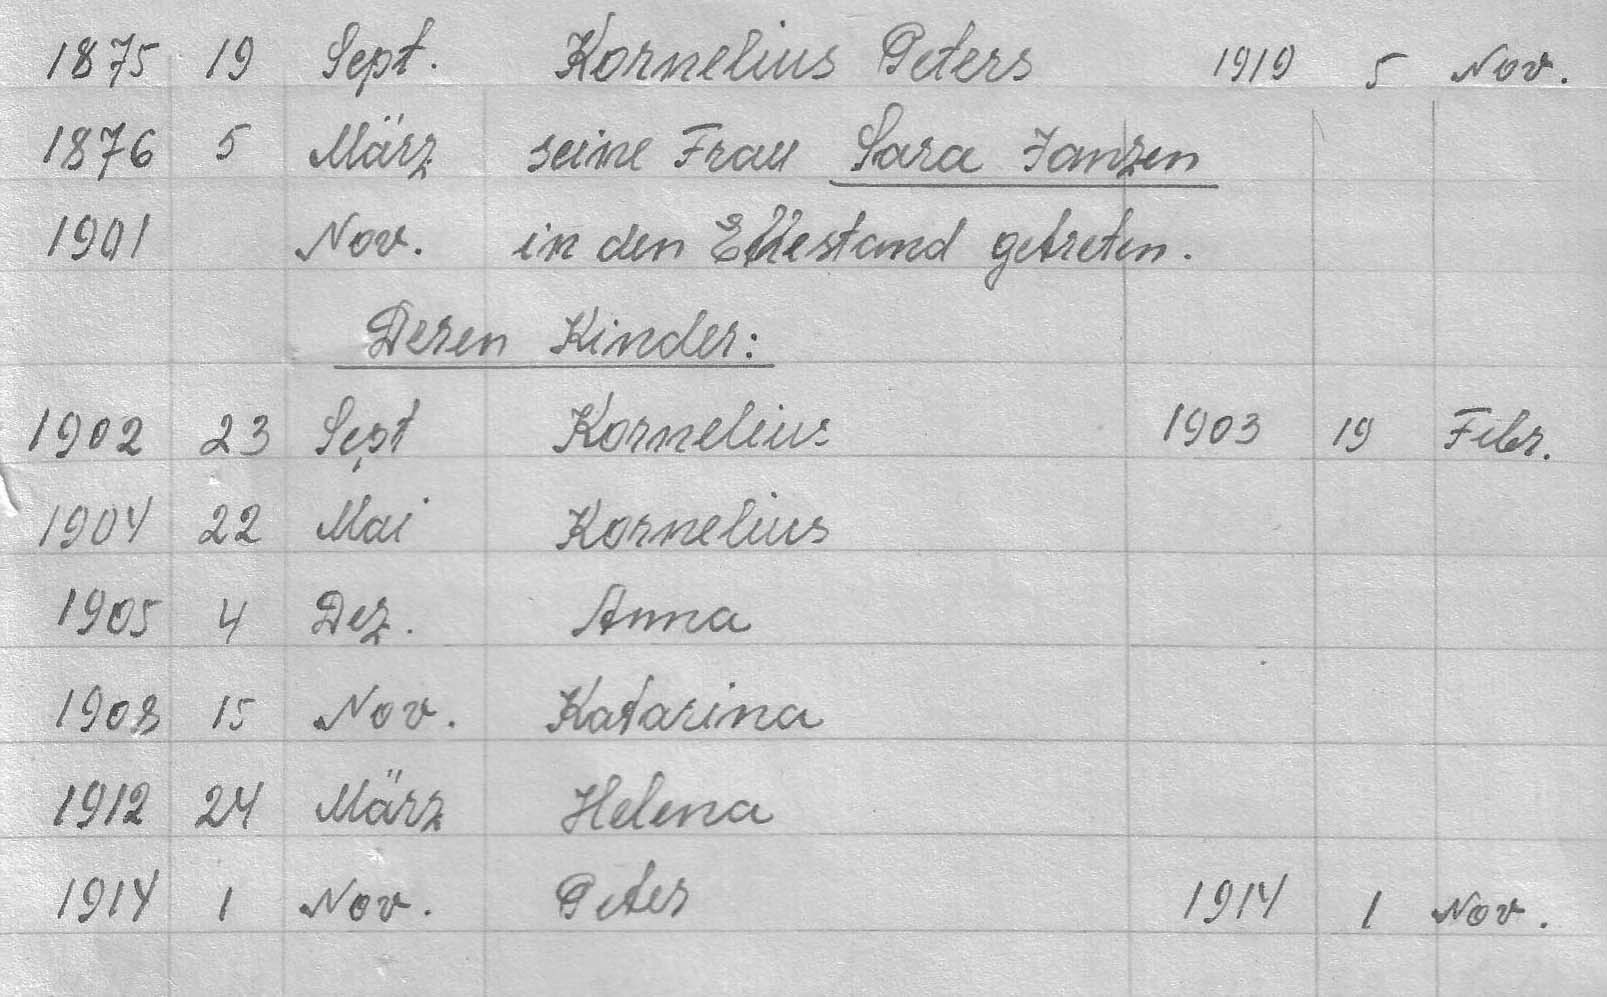 1875 19 Sept. Kornelius Peters 1919 5 Nov.
1876 5 März seine Frau Sara Janzen
1901 Nov. in den Ehestand getreten.
Deren Kinder:
1902 23 Sept Kornelius 1903 19 Febr.
1904 22 Mai Kornelius
1905 4 Dez. Anna
1908 15 Nov. Katarina
1912 24 März Helena
1914 1 Nov. Peter 1914 1 Nov.